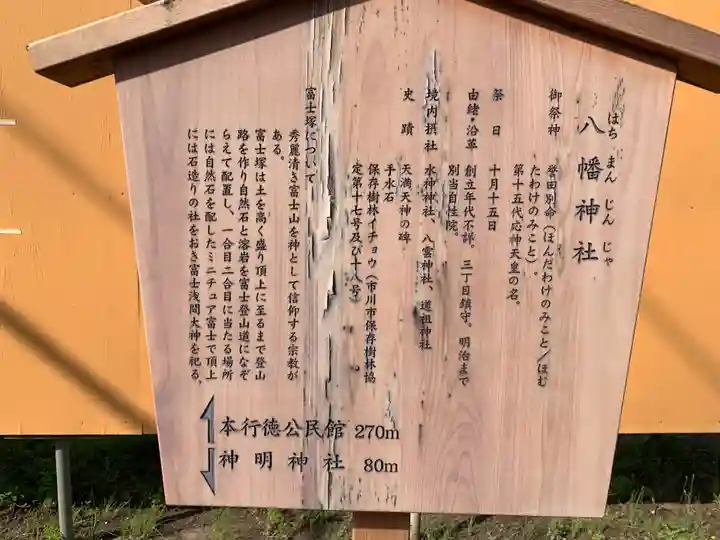 八幡神社
はちまんじんじゃ
御祭神　誉田別命（ほんだわけのみこと／ほむ
たわけのみこと）。
第十五代応神天皇の名。
祭　日　十月十五日
由緒・沿革　創立年代不詳。三丁目鎮守。明治まで
別当自性院。
境内摂社　水神神社、八雲神社、道祖神社
史　蹟　天満天神の碑
手水石
保存樹林イチョウ（市川市保存樹林協
定第十七号及び十八号）。
富士塚について
秀麗清き富士山を神として信仰する宗教が
ある。
富士塚は土を高く盛り頂上に至るまで登山
路を作り自然石と溶岩を富士登山道になぞ
らえて配置し、一合目二合目に当たる場所
には自然石を配したミニチュア富士で頂上
には石造りの社をおき富士浅間大神を祀る。
本行徳公民館 270m
神明神社 80m